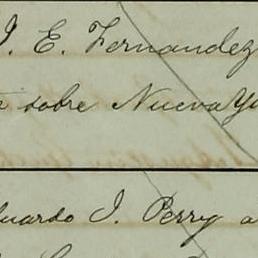 J. E. Fernandez
sobre Nueva Yo
duardo J. Perry a